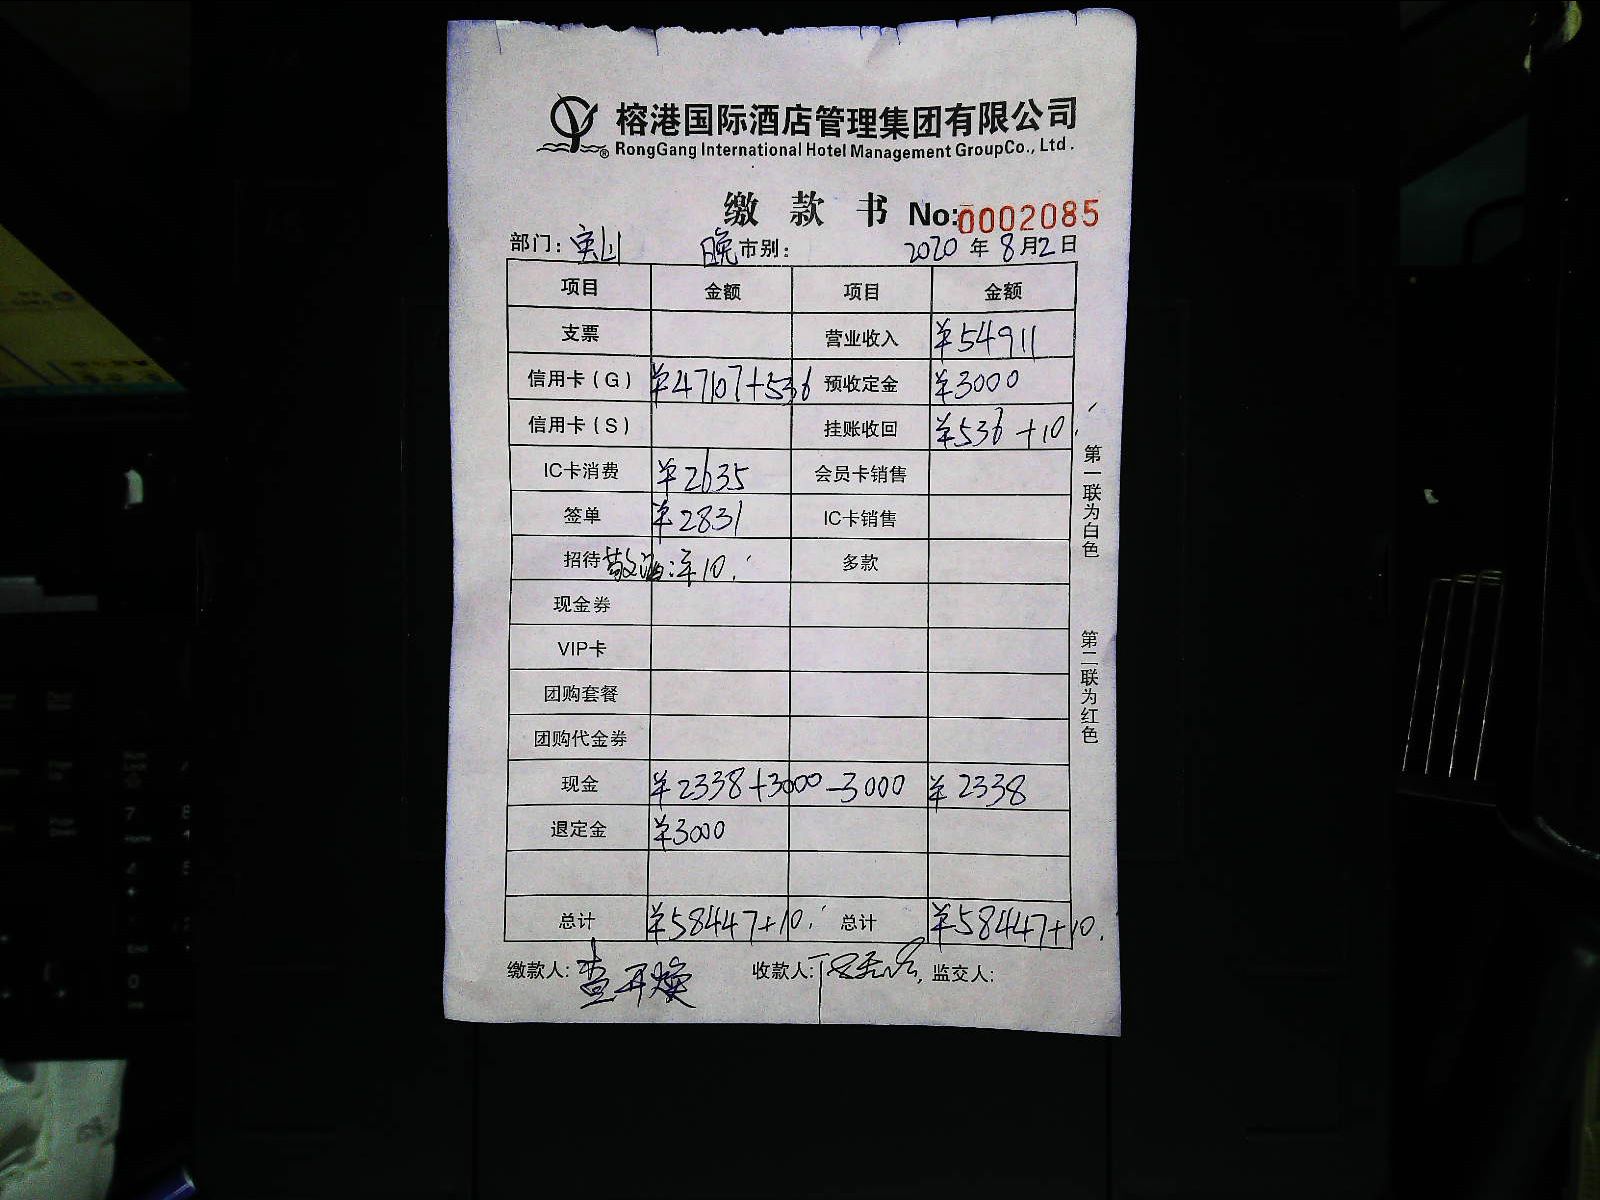 榕港国际酒店管理集团有限公司
RongGang International Hotel Management GroupCo., Ltd.
缴 款 书 No:0002085
部门: 晚市别: 2020 年 8 月 2 日
项目 金额 项目 金额
支票 营业收入 ¥54911
信用卡(G) ¥47107+536 预收定金 ¥3000
信用卡(S) 挂账收回 ¥536+10.
IC卡消费 ¥2635 会员卡销售
签单 ¥2831 IC卡销售
招待 敬酒:羊10. 多款
现金券
VIP卡
团购套餐
团购代金券
现金 ¥2338+3000-3000 ¥2338
退定金 ¥3000
总计 ¥58447+10. 总计 ¥58447+10.
缴款人: 收款人: 监交人:
第一联为白色
第二联为红色